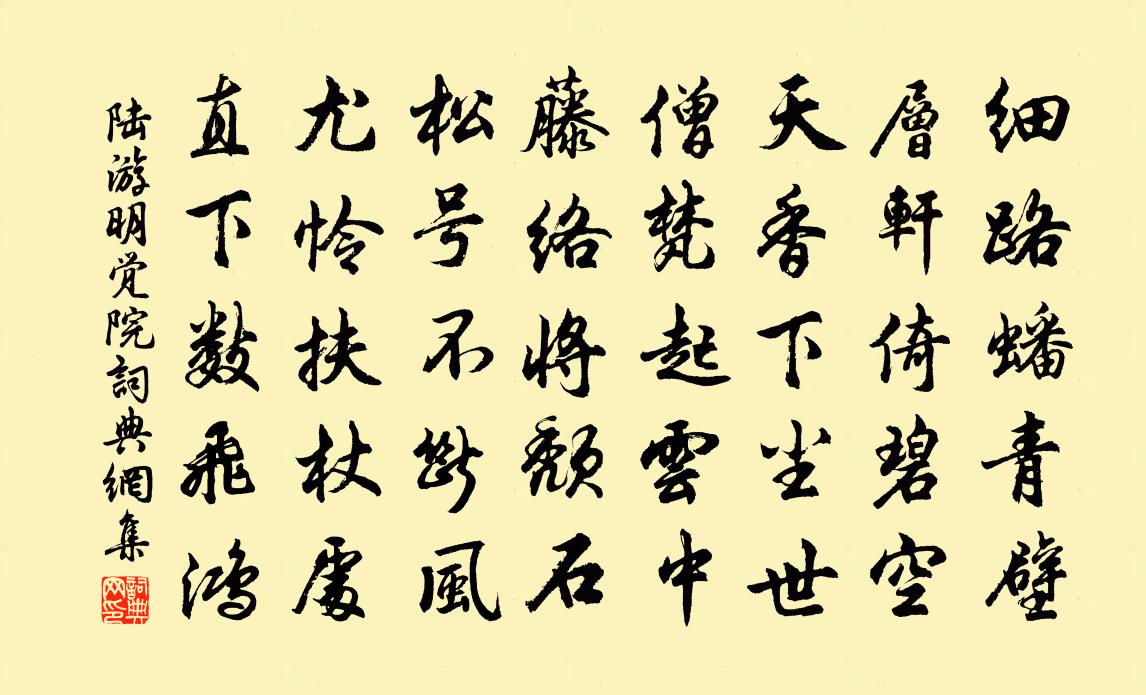 细路蟠青壁
層軒倚碧空
天香下尘世
僧梵起雲中
藤络將颓石
松号不斷風
尤怜扶杖處
直下数飛鴻
陆游明觉院詞典網集
詞典网印